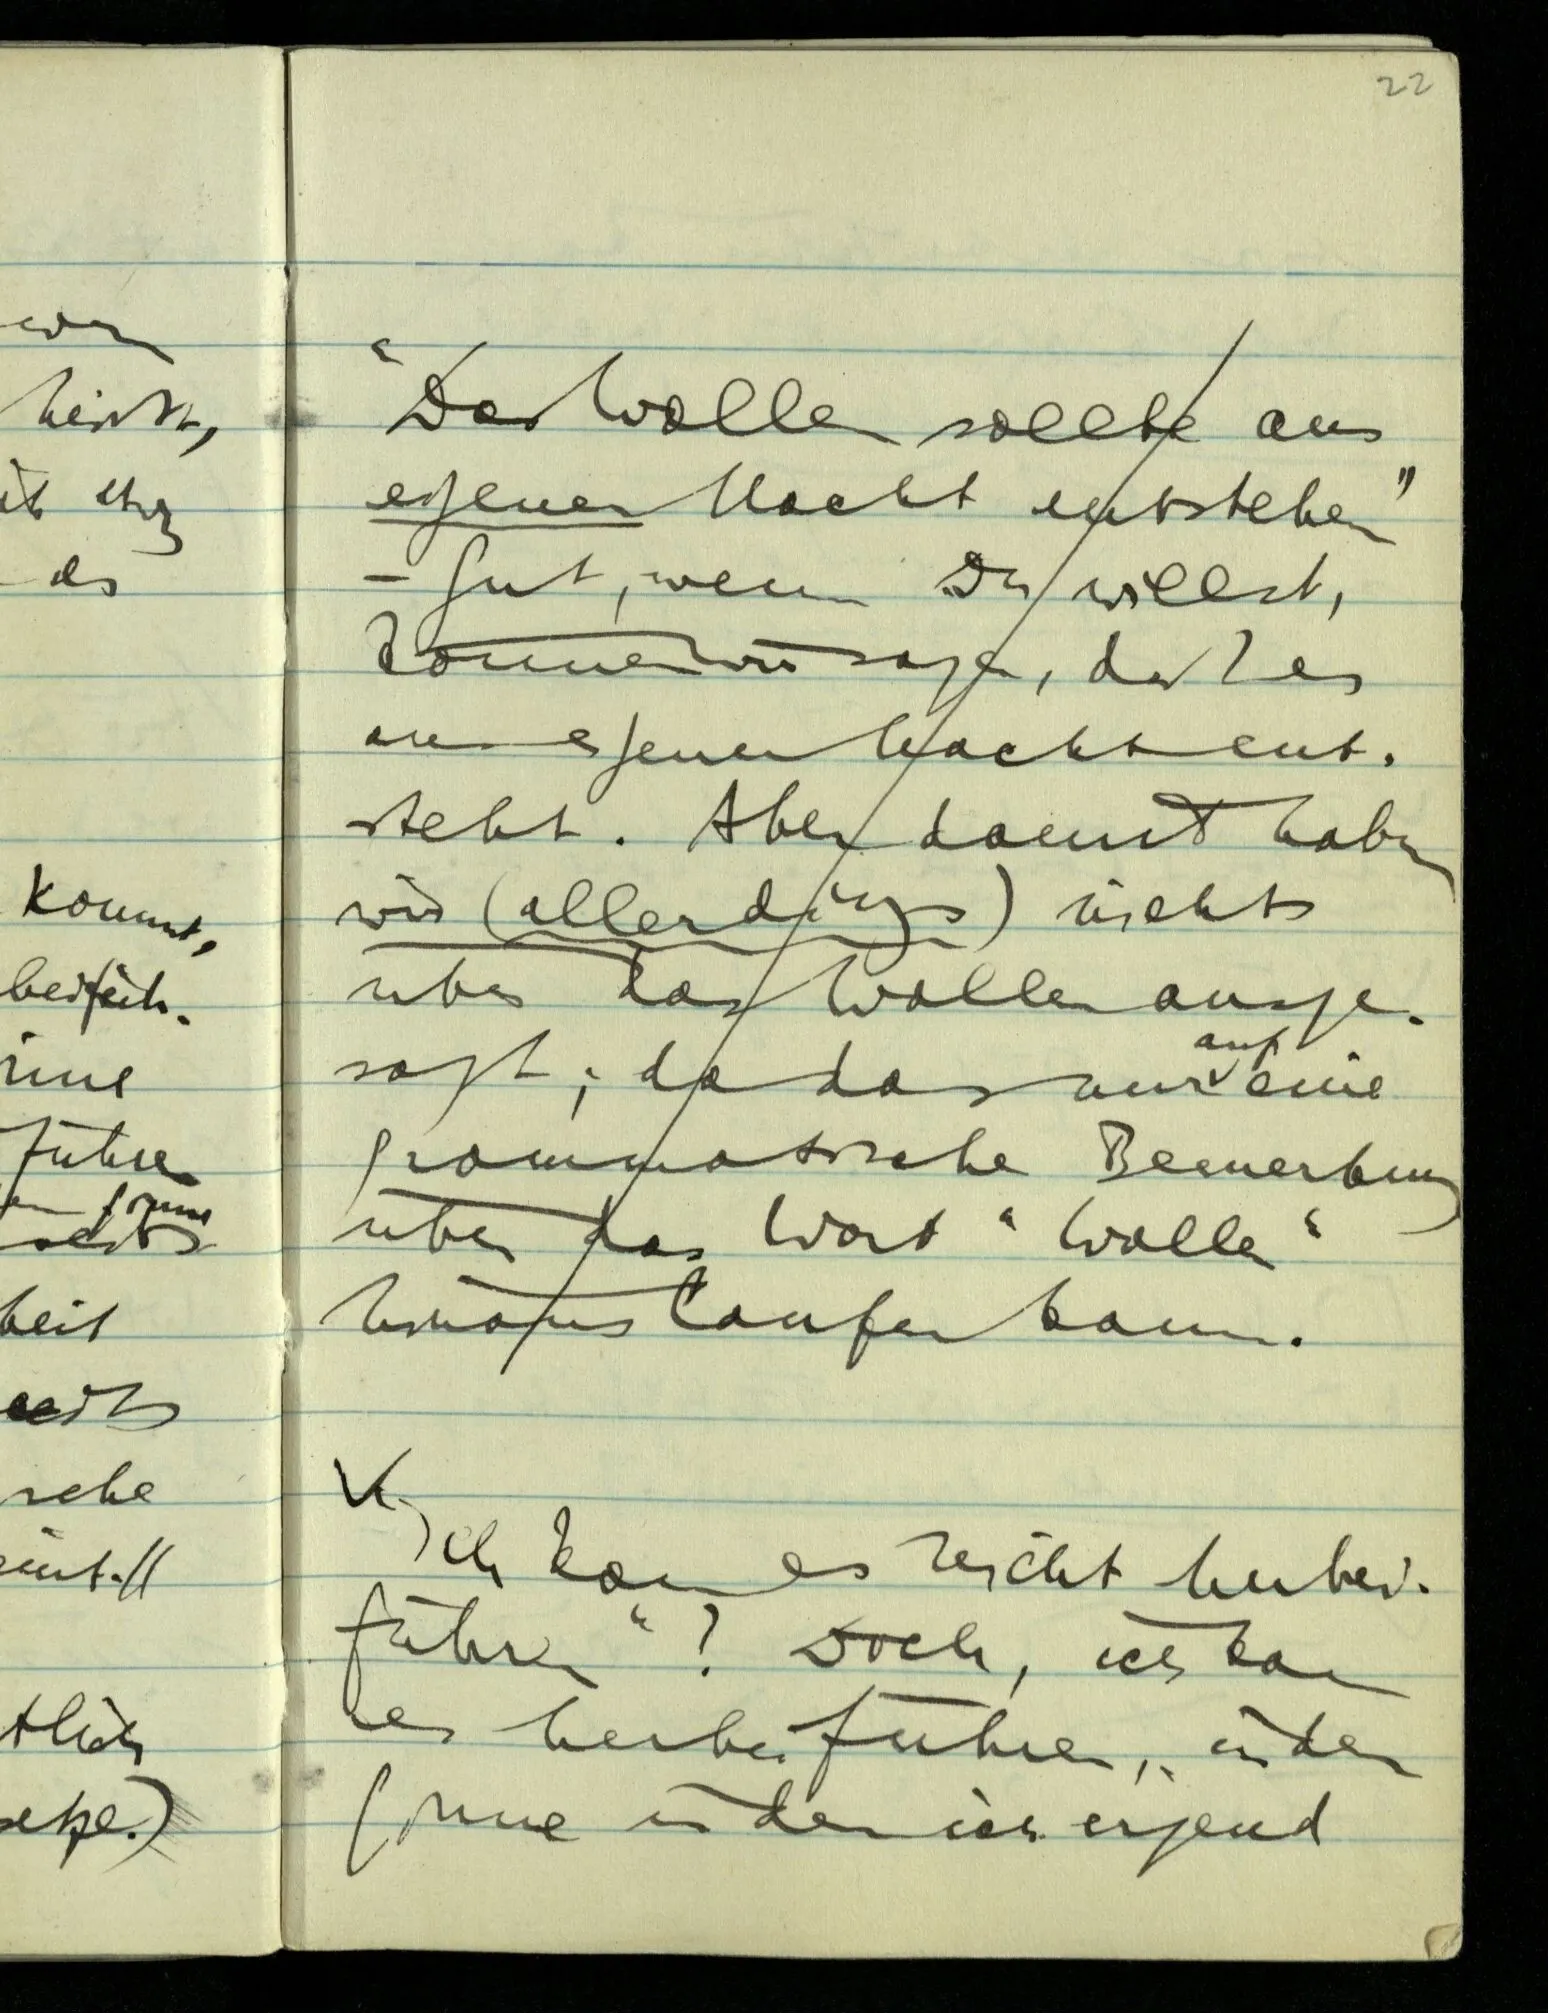 22
"Das Wollen sollte aus
eigener Macht entstehen"
– Gut, wenn Du willst,
können wir sagen, daß es
aus eigener Macht ent-
steht. Aber damit haben
wir (allerdings) nichts
über das Wollen ausge-
sagt; da das nur auf eine
grammatische Bemerkung
über das Wort "Wollen"
hinauslaufen kann.
Ich kann es nicht herbei-
führen"? Doch, ich kann
es herbeiführen, in dem
Sinne in dem ich irgend
heißt,
es
kommt,
herbeifüh-
Sinne
führen